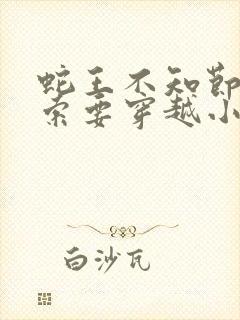 蛇王不知節
索要穿越小
白沙瓦